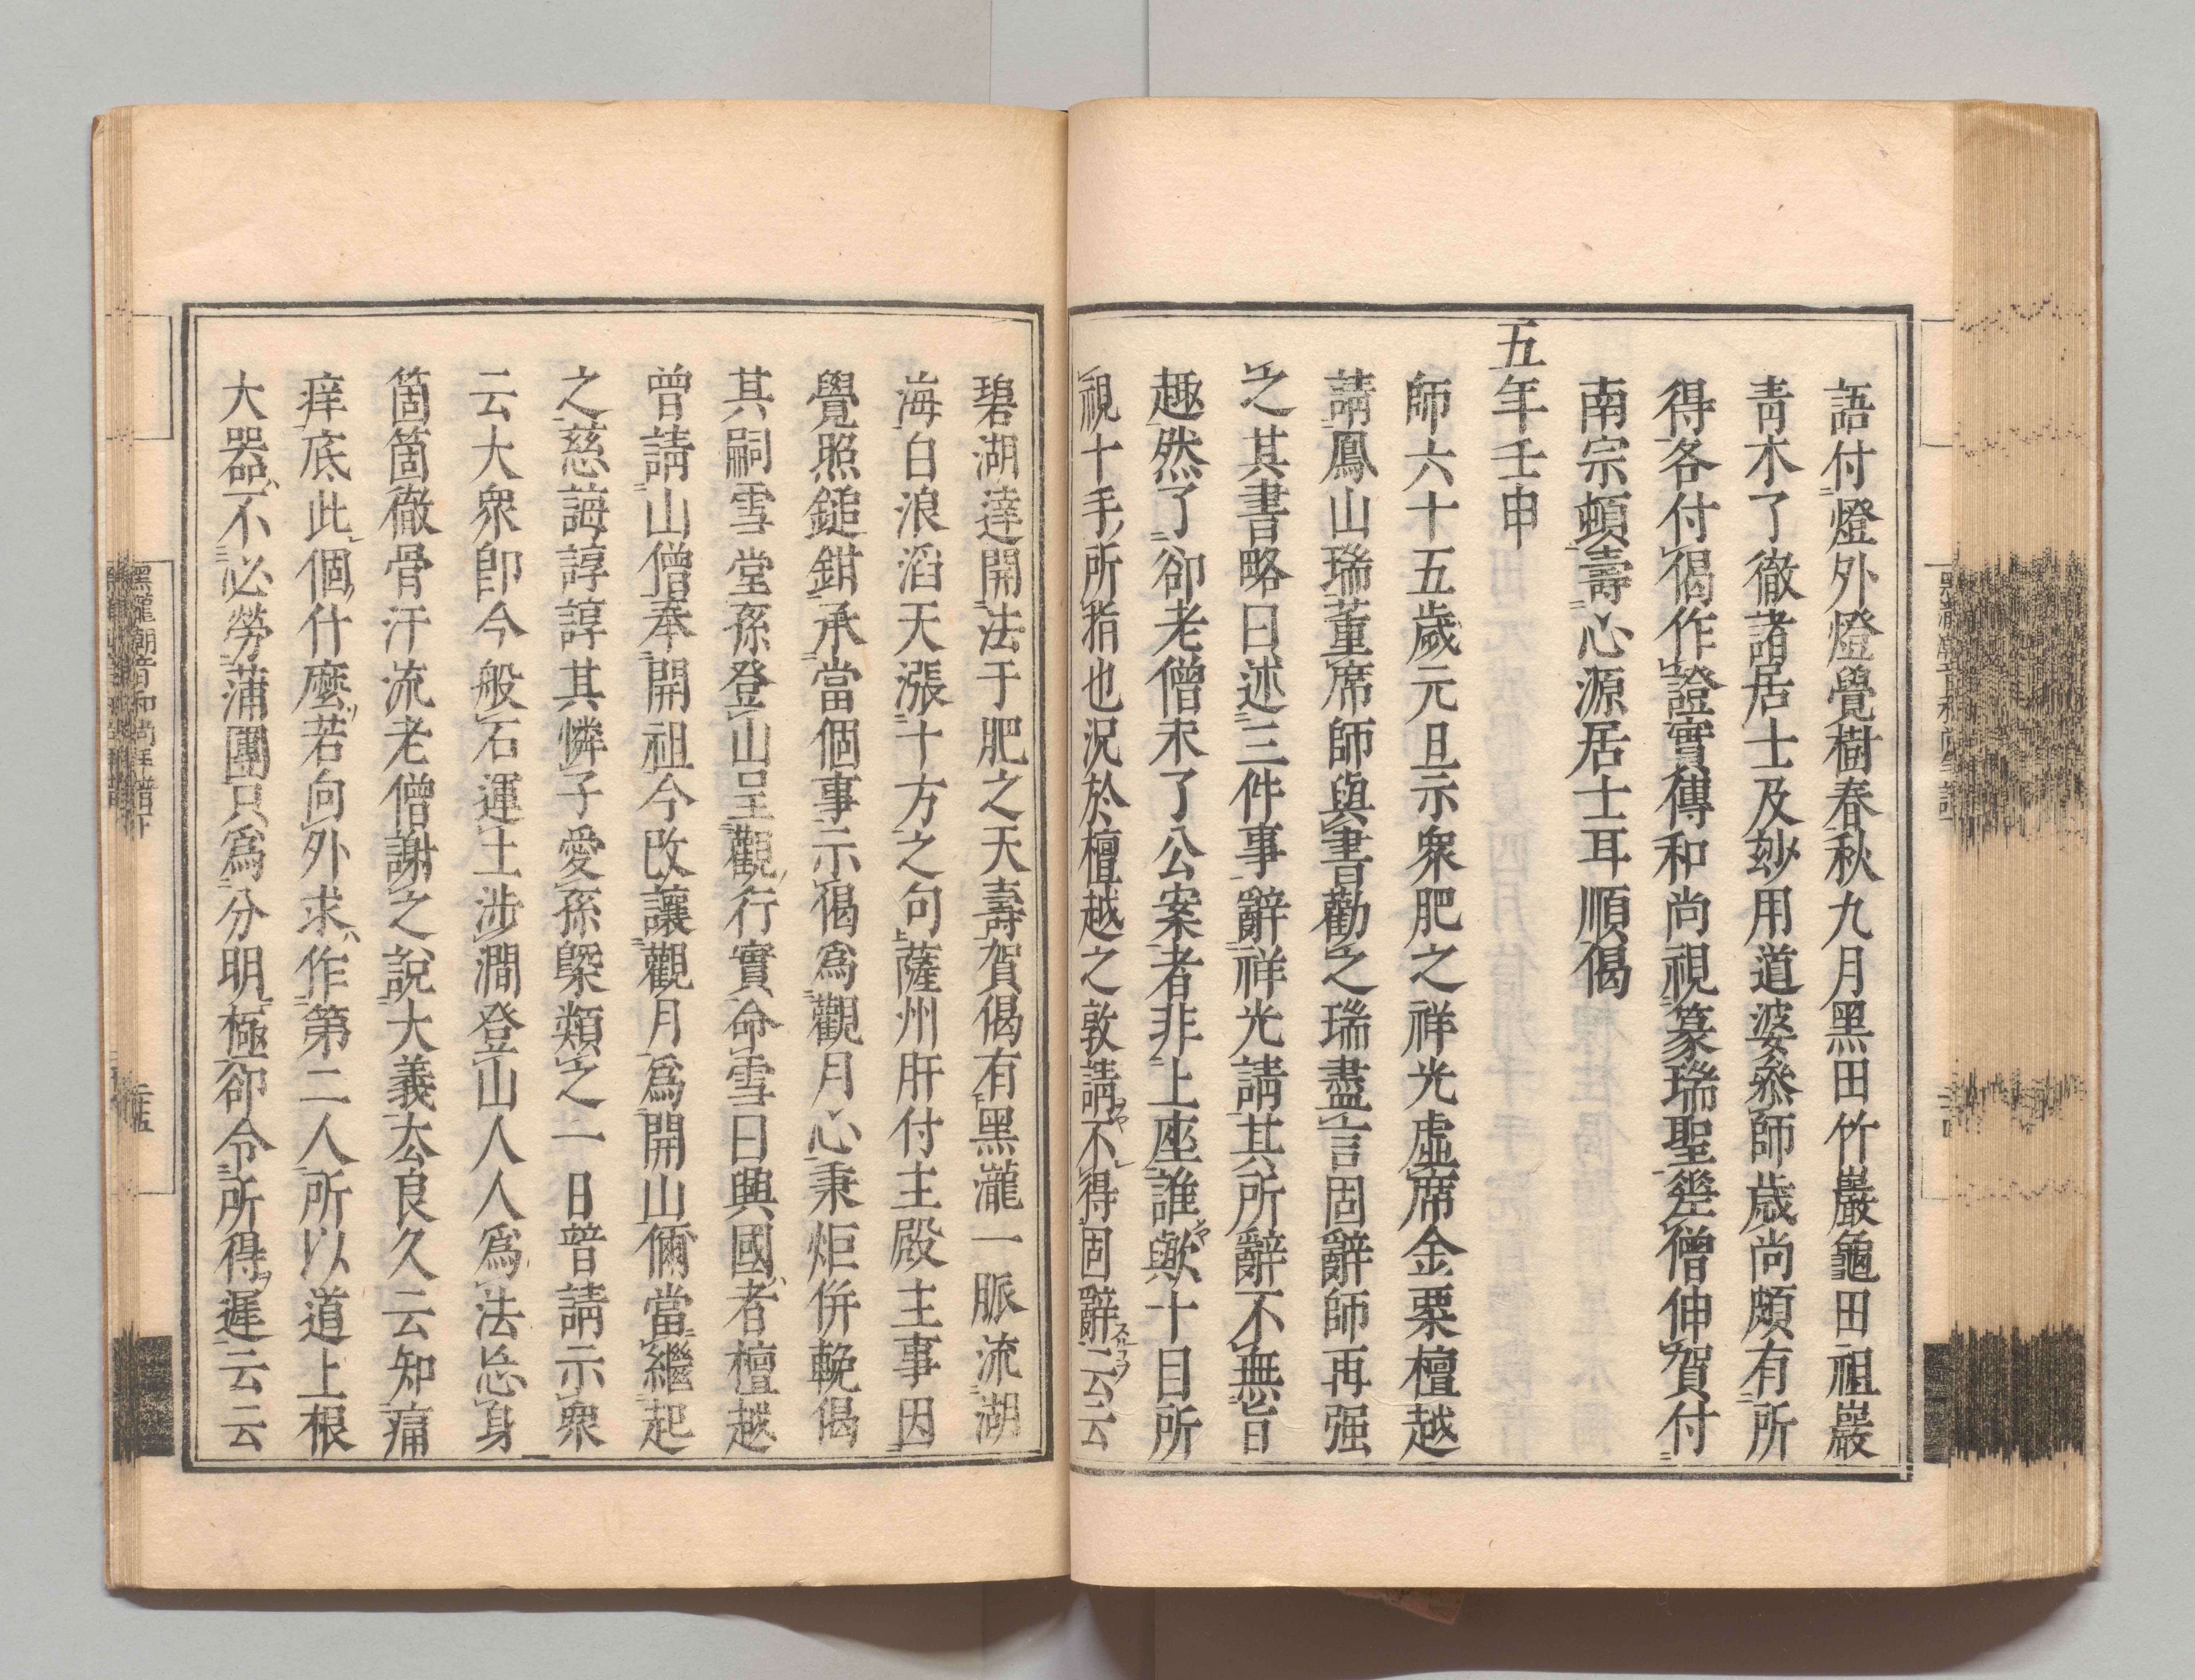 語付燈外燈覺樹春秋九月黑田竹巖龜田祖巖
青木了徹諸居士及玅用道婆叅師歲尚頗有所
得各付偈作證實傳和尚視篆瑞聖縒僧伸賀付
南宗頓壽心源居士耳順偈
五年壬申
師六十五歲元旦示衆肥之祥光虛席金粟檀越
請鳳山瑞董席師與書勸之瑞盡言固辭師再强
之其書略曰述三件事辭祥光請其所辭不無旨
趣然了卻老僧未了公案者非上座誰歟十目所
視十手所指也況於檀越之敦請不得固辭云云
碧湖達開法于肥之天壽賀偈有黑瀧一脈流湖
海白浪滔天漲十方之句薩州肝付主殿主事因
覺照鎚鉗承當個事示偈爲觀月心秉炬併輓偈
其嗣雪堂孫登山呈觀行實命雪曰興國者檀越
曾請山僧奉開祖今改讓觀月爲開山儞當繼起
之慈誨諄諄其憐子愛孫槩類之一日普請示衆
云大衆卽今般石運土涉澗登山人人爲法忘身
箇箇徹骨汗流老僧謝之說大義厺良久云知痛
痒底此個什麼若向外求作第二人所以道上根
大器不必勞蒲團只爲分明極卻令所得遲云云
黑瀧潮音和尚年譜下